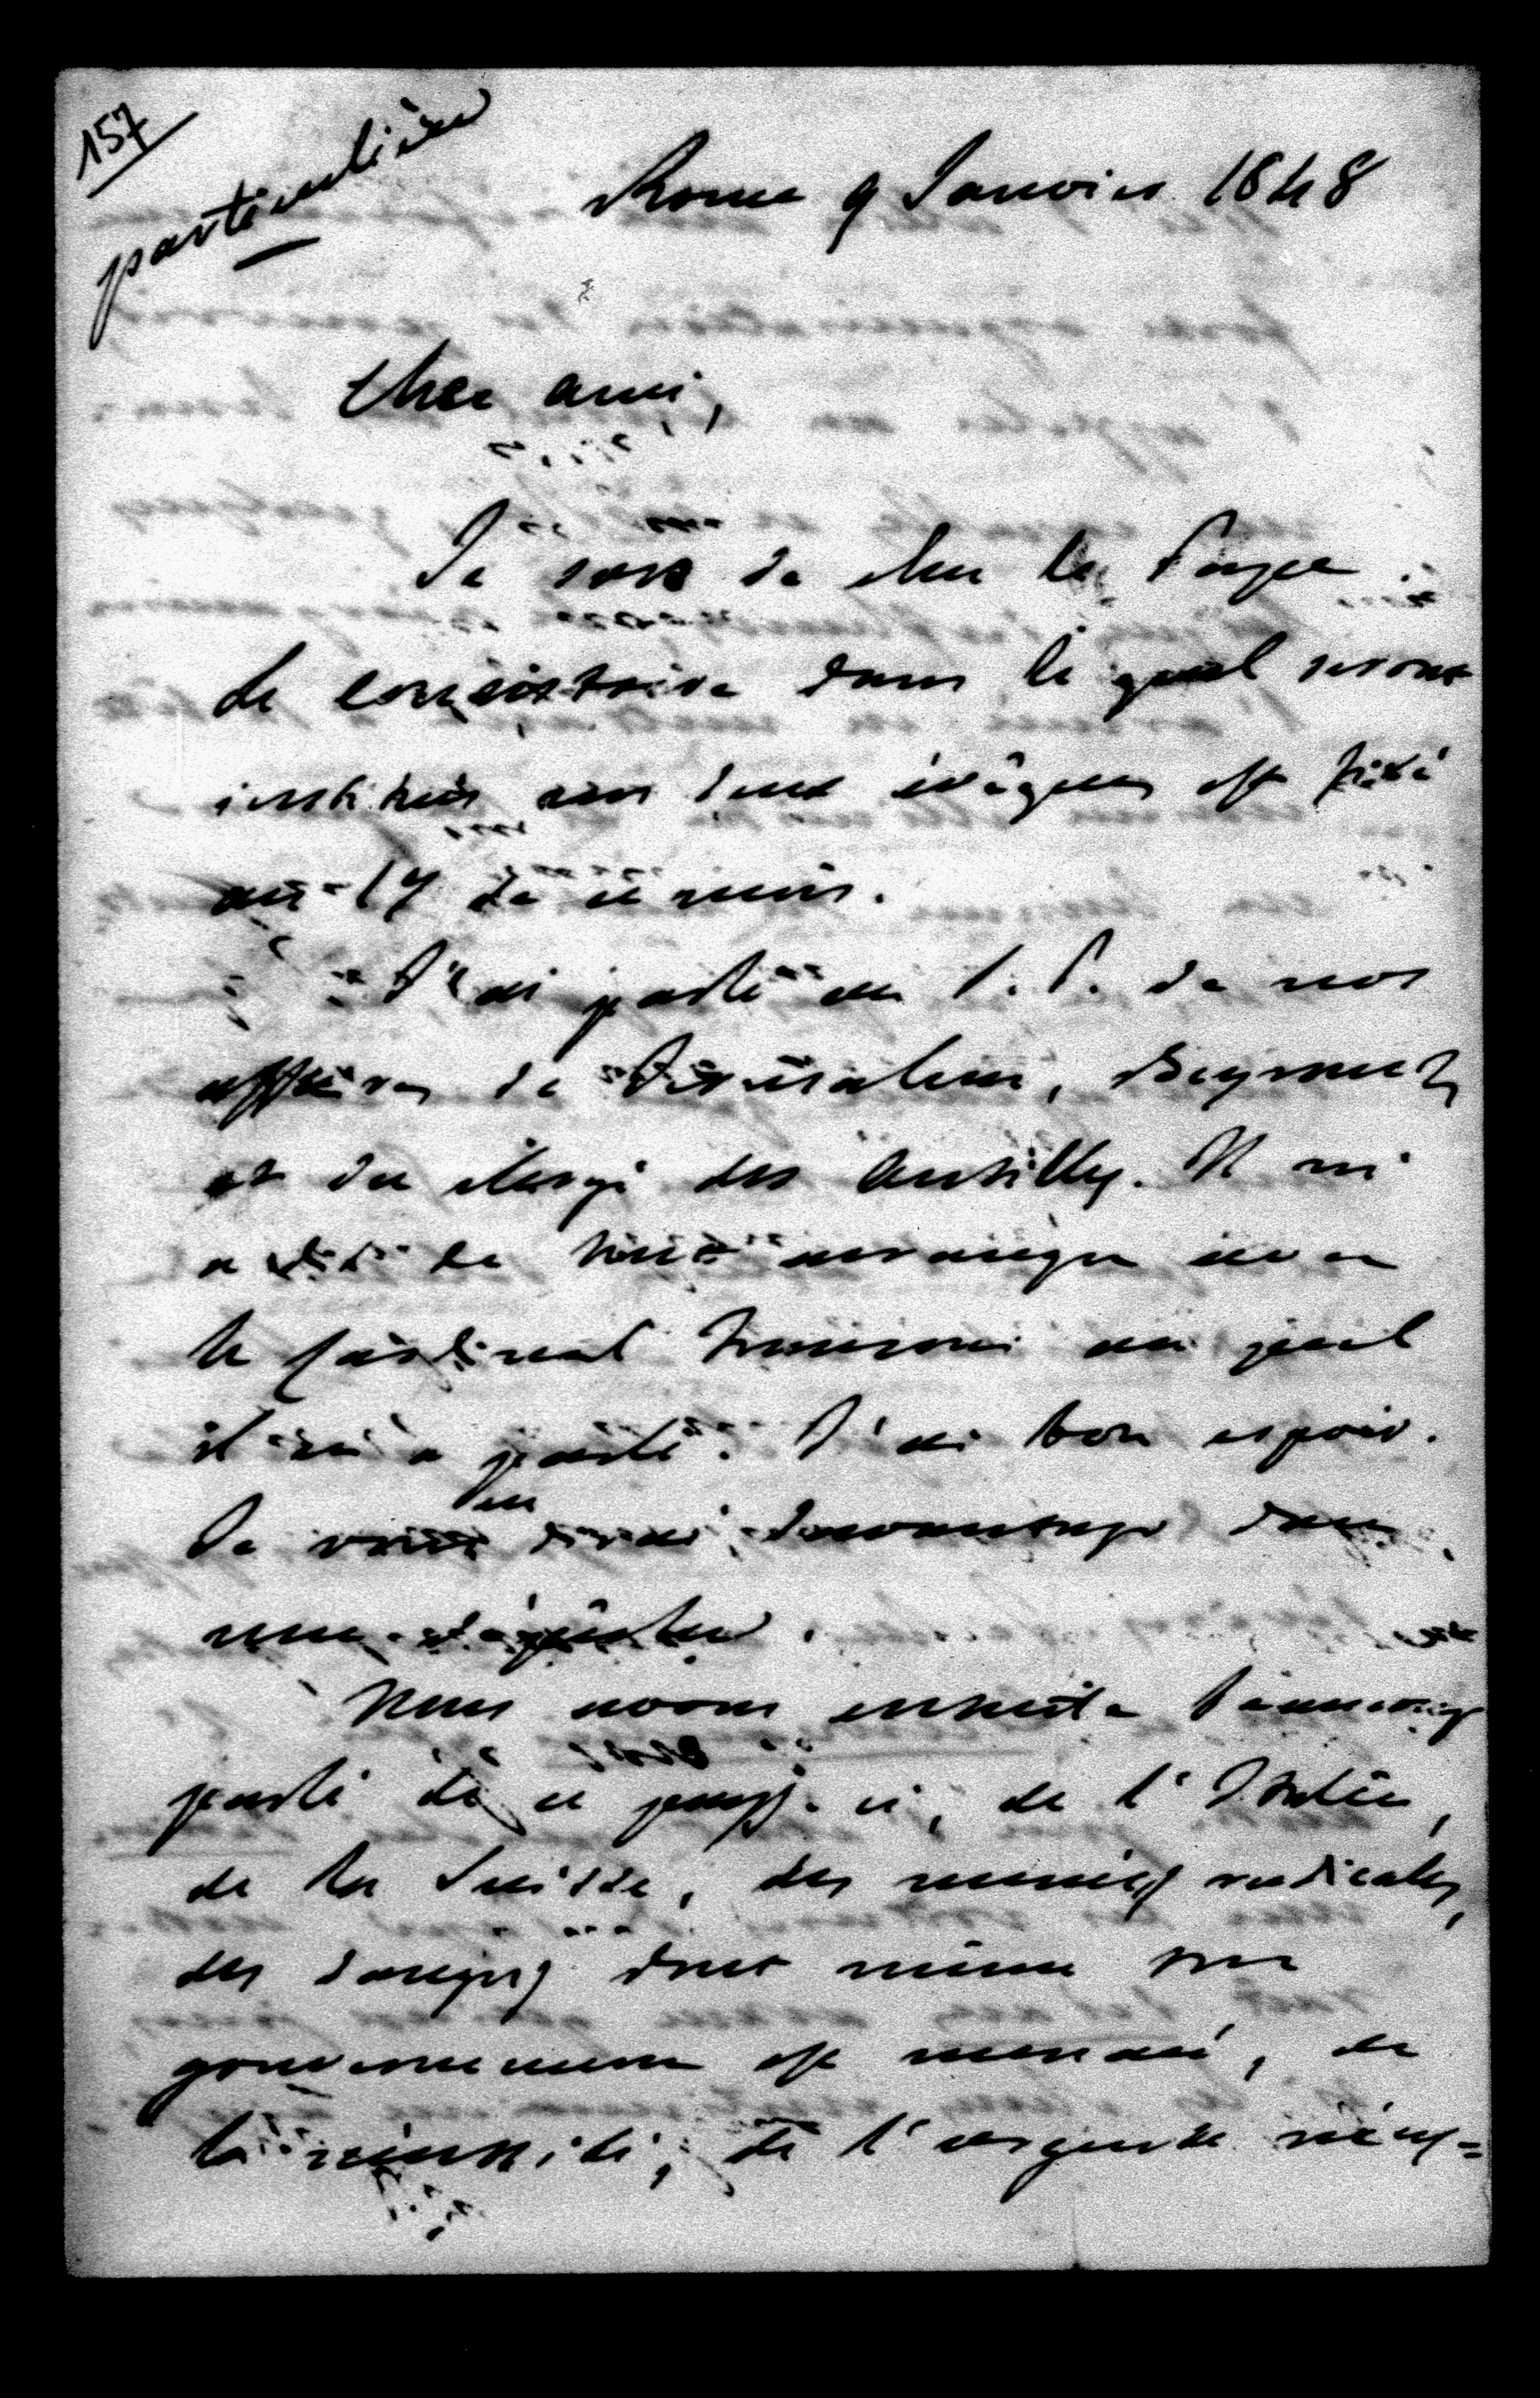 157
particulière
Rome 9 Janvier 1848
Cher ami,
Je sors de chez le Pape.
Le consistoire dans le quel seront
institués nos deux évêques est fixé
au 17 de ce mois.
J'ai parlé au S. P. de nos
affaires de Jérusalem, Beyrouth
et du clergé des Antilles. Il m'
a dit de tout arranger avec
le Cardinal Franzoni au quel
il en a parlé. J'ai bon espoir.
Je vous en dirai davantage dans
une dépêche.
Nous avons ensuite beaucoup
parlé de ce pays-ci, de l'Italie,
de la Suisse, des menées radicales,
des dangers dont même son
gouvernement est menacé, de
la nécessité, de l'urgente néces=